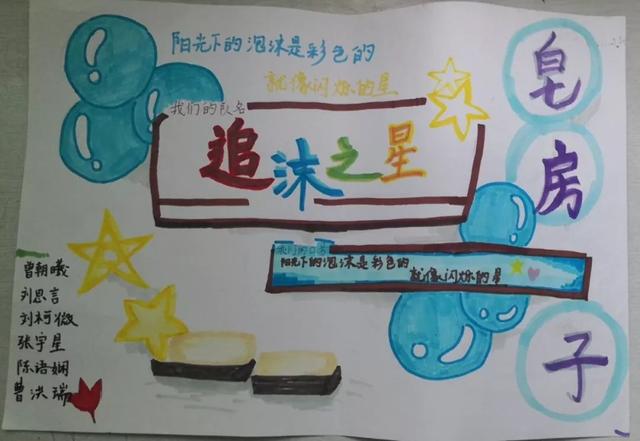 阳光下的泡沫是彩色的
就像闪烁的星
我们的队名
追沫之星
皂房子
我们的口号
阳光下的泡沫是彩色的
就像闪烁的星
曾朝曦
刘思言
刘柯微
张宇星
陈语娴
曹洪瑞